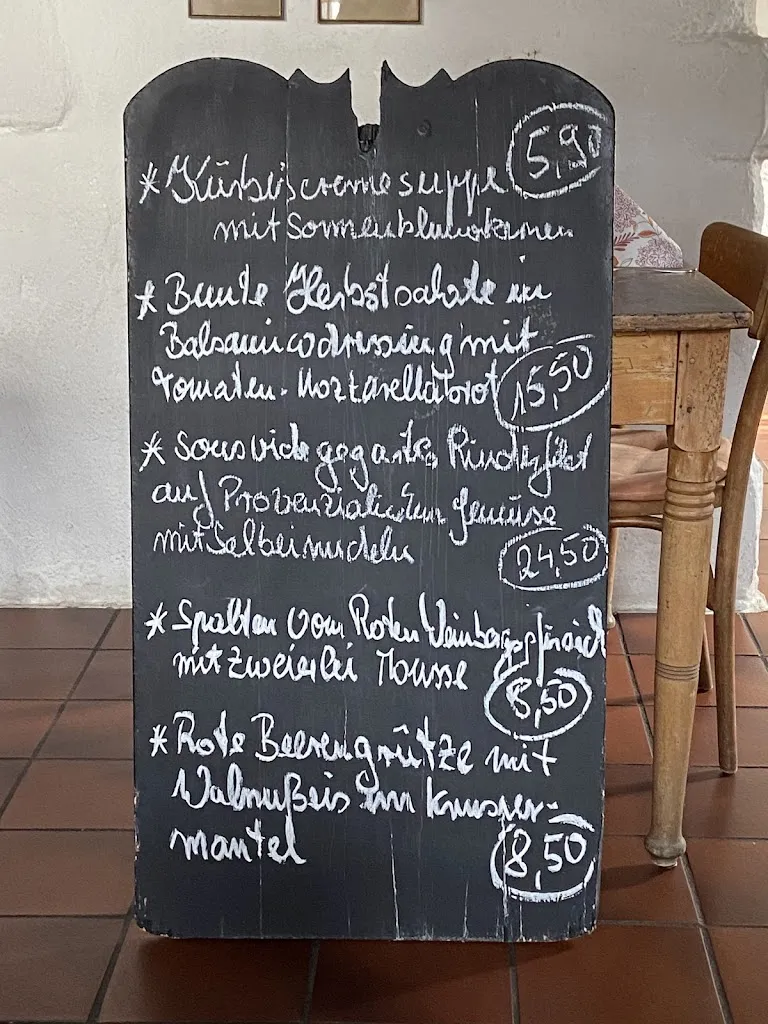 * Kürbiscremesuppe 5,90
mit Sonnenblumenkernen
* Bunte Herbstsalate in
Balsamicodressing mit
Tomaten-Mozzarellabrot 15,50
* Sousvide gegartes Rinderfilet
auf Provenzialischem Gemüse
mit Selbeinudeln
24,50
* Spalten vom Roten Weinbergpfirsich
mit zweierlei Mousse
8,50
* Rote Beerengrütze mit
Walnußeis im Knusper-
mantel 8,50